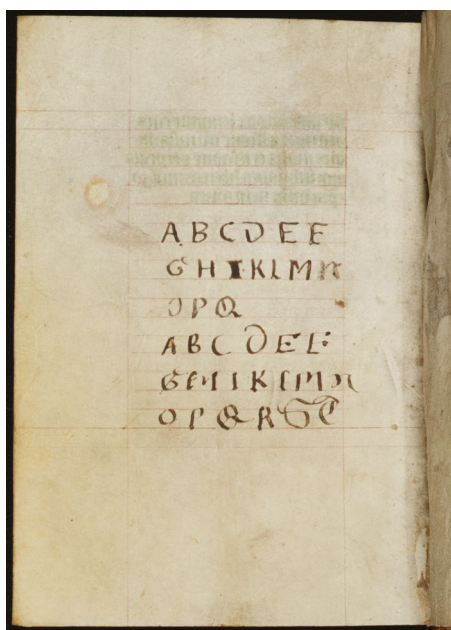 A B C D E F
G H I K L M N
O P Q
A B C D E F
G H I K L M N
O P Q R S T